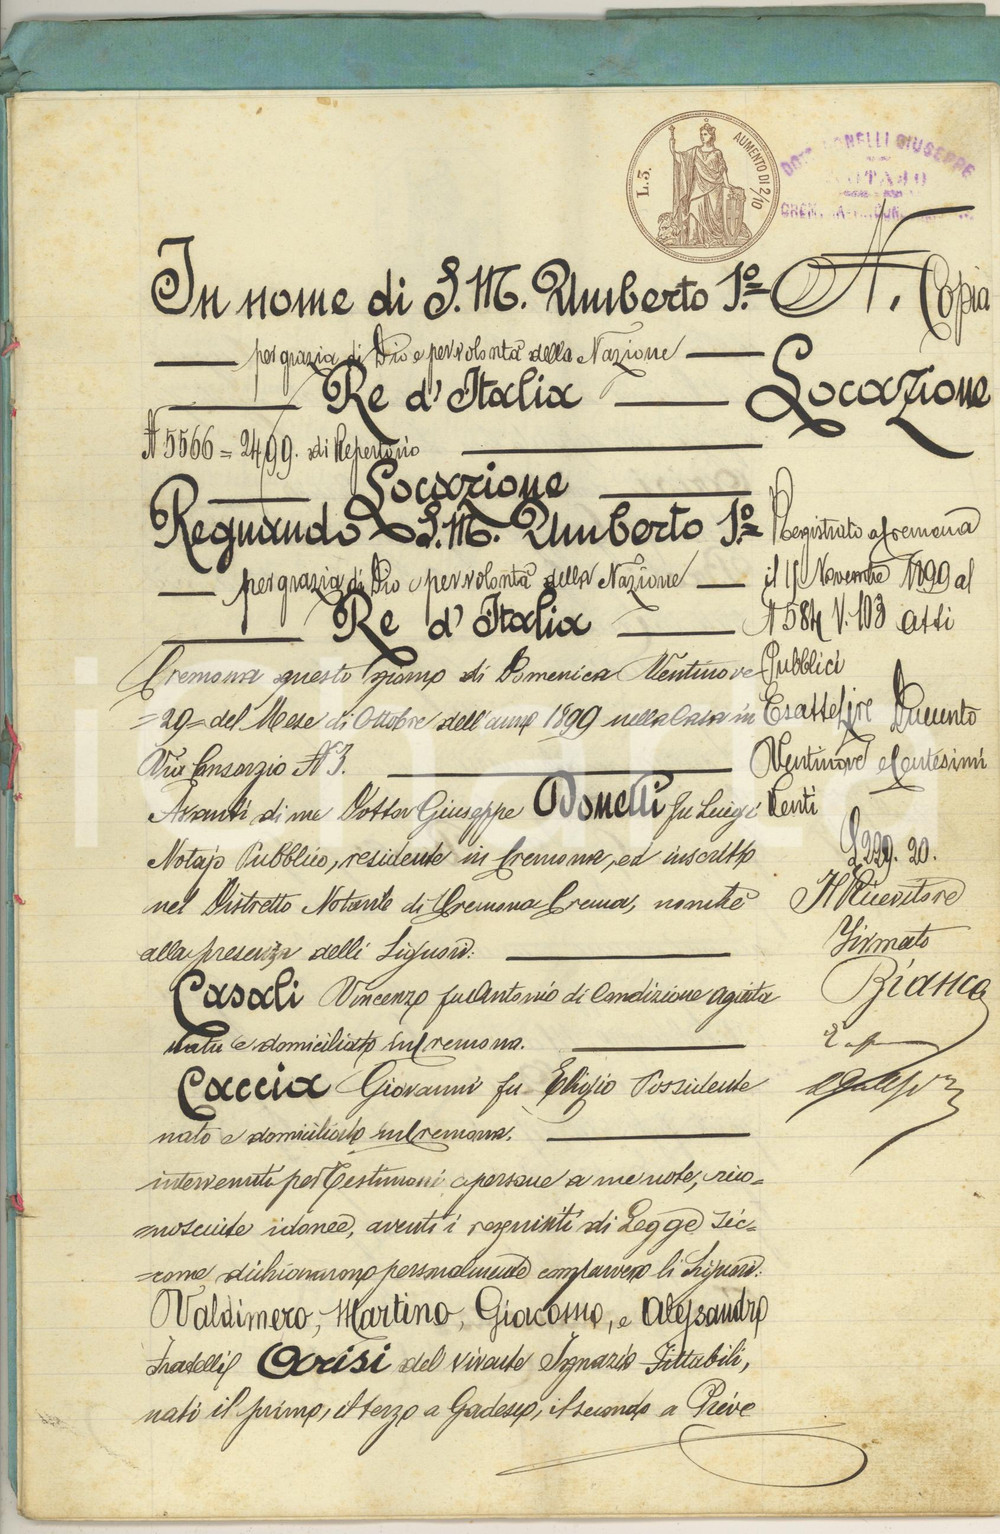 L. 3.
AUMENTO DI 2/10
DOTT. DONELLI GIUSEPPE
NOTAJO
In nome di S. M. Umberto 1.º
per grazia di Dio e per volontà della Nazione
Re d'Italia
N. 5566 = 2499. di Repertorio
Locazione
Regnando S. M. Umberto 1.º
per grazia di Dio e per volontà della Nazione
Re d'Italia
Cremona questo giorno di Domenica Ventinove
=29= del Mese di Ottobre dell'anno 1899 nella Casa in
Via Consorzio N. 3.
Avanti di me Dottor Giuseppe Donelli fu Luigi
Notajo Pubblico, residente in Cremona, ed inscritto
nel Distretto Notarile di Cremona Crema, nonchè
alla presenza delli Signori:
Casali Vincenzo fu Antonio di Condizione agiata
nato e domiciliato in Cremona.
Caccia Giovanni fu Eligio Possidente
nato e domiciliato in Cremona.
intervenuti per Testimoni e persone a me note, rico=
=nosciute idonee, aventi i requisiti di Legge sic=
=come dichiararono personalmente comparvero li Signori:
Valdimero, Martino, Giacomo, e Alessandro
Fratelli Arisi del vivente Ignazio Fittabili,
nati il primo, il terzo a Gadesco, il secondo a Pieve
N. Copia
Locazione
Registrato a Cremona
il 15 Novembre 1899 al
N. 584 V. 103 Atti
Pubblici
Esatte Lire Duecento
Ventinove e Centesimi
Venti
L. 229. 20.
Il Ricevitore
Firmato
Bianca